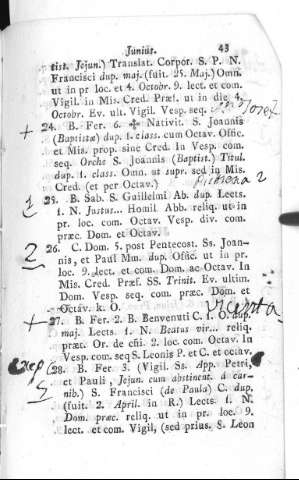 Junius. 43
tist. Jejun.) Translat. Corpor. S. P. N.
Francisci dup. maj. (fuit. 25. Maj.) Omn.
ut in pr loc. et 4. Octobr. 9. lect. et com.
Vigil. in Mis. Cred. Præf. ut in die 4.
Octobr. Ev. ult. Vigil. Vesp. seq.
24. B. Fer. 6. ✠ Nativit. S. Joannis
(Baptistæ) dup. 1. class. cum Octav. Offic.
et Mis. prop. sine Cred. In Vesp. com.
seq. Orche S. Joannis (Baptist.) Titul.
dup. 1. class. Omn. ut supr. sed in Mis.
Cred. (et per Octav.)
1
25. B. Sab. S. Guillelmi Ab. dup. Lects.
1. N. Justus... Homil. Abb. reliq. ut in
pr. loc. com. Octav. Vesp. div. com.
præc. Dom. et Octav.
2
26. C. Dom. 5. post Pentecost. Ss. Joan-
nis, et Paul Mm. dup. Offic. ut in pr.
loc. 9. lect. et com. Dom. ac Octav. In
Mis. Cred. Præf. SS. Trinit. Ev. ultim.
Dom. Vesp. seq. com. præc. Dom. et
Octáv. k. O.
27. B. Fer. 2. B. Benvenuti C. 1. O. dup.
maj. Lects. 1. N. Beatus vir... reliq.
præt. Or. de cñi. 2. loc. com. Octav. In
Vesp. com. seq S. Leonis P. et C. et octav.
28. B. Fer. 3. (Vigil. Ss. App. Petri,
et Pauli, Jejun. cum abstinent. a car-
nib.) S. Francisci (de Paula) C. dup.
(fuit. 2. April. in R.) Lects. 1. N.
Dom. præc. reliq. ut in pr. loc. 9.
lect. et com. Vigil, (sed prius. S. Leon